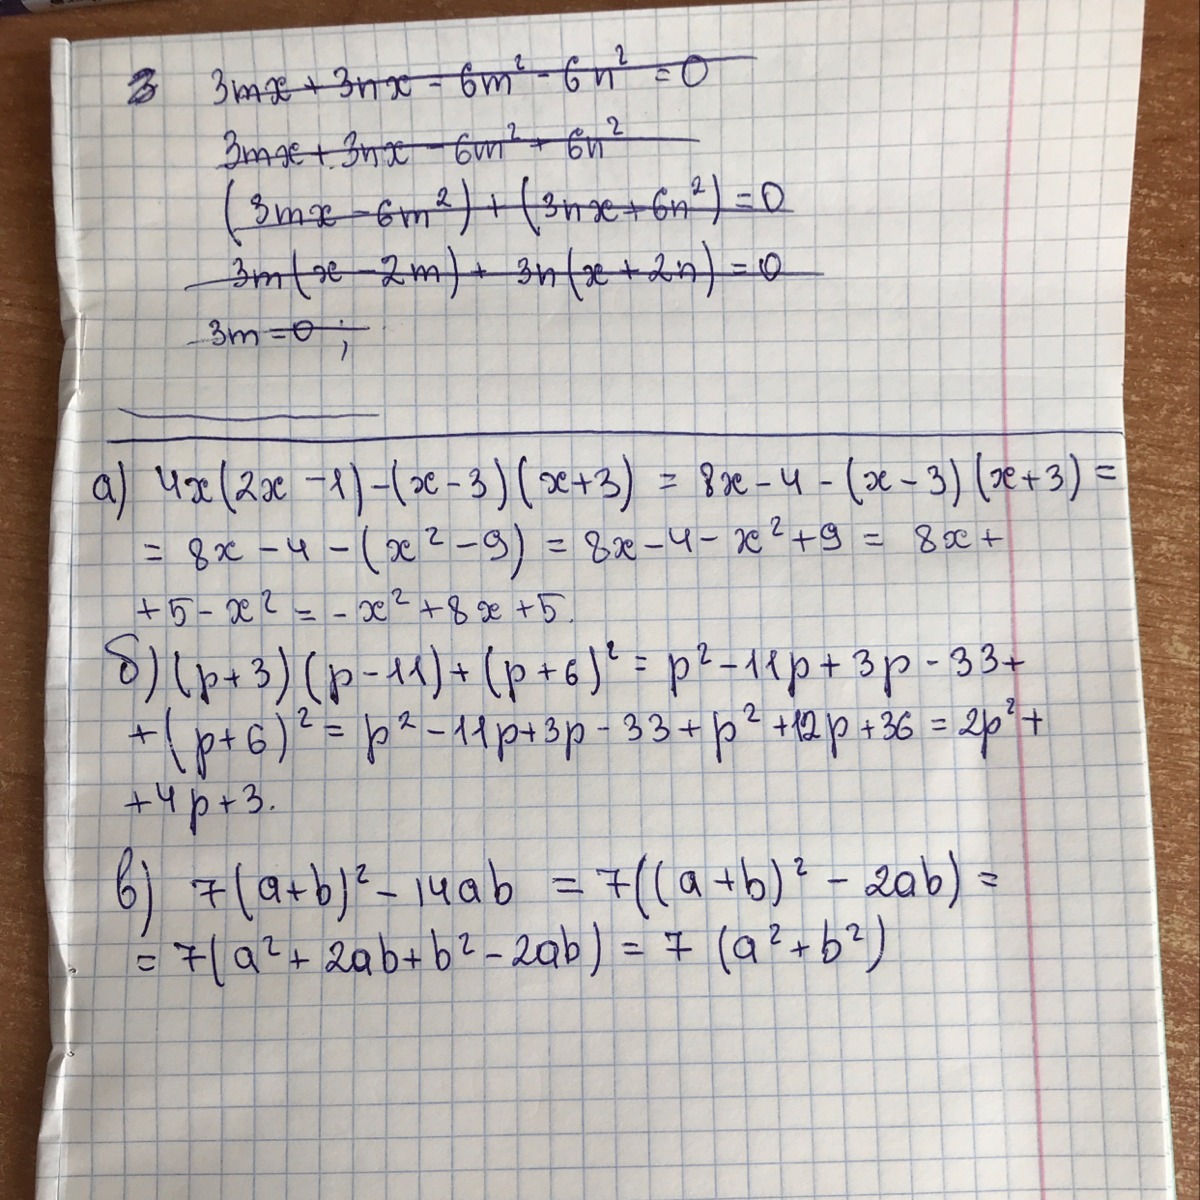 3 3mx + 3nx - 6m² - 6n² = 0
3mx + 3nx - 6m² + 6n²
(3mx - 6m²) + (3nx + 6n²) = 0
3m(x - 2m) + 3n(x + 2n) = 0
3m = 0 ;
а) 4x(2x - 1) - (x - 3)(x + 3) = 8x - 4 - (x - 3)(x + 3) =
= 8x - 4 - (x² - 9) = 8x - 4 - x² + 9 = 8x +
+ 5 - x² = - x² + 8x + 5.
б) (p + 3)(p - 11) + (p + 6)² = p² - 11p + 3p - 33 +
+ (p + 6)² = p² - 11p + 3p - 33 + p² + 12p + 36 = 2p² +
+ 4p + 3.
в) 7(a + b)² - 14ab = 7((a + b)² - 2ab) =
= 7(a² + 2ab + b² - 2ab) = 7 (a² + b²)